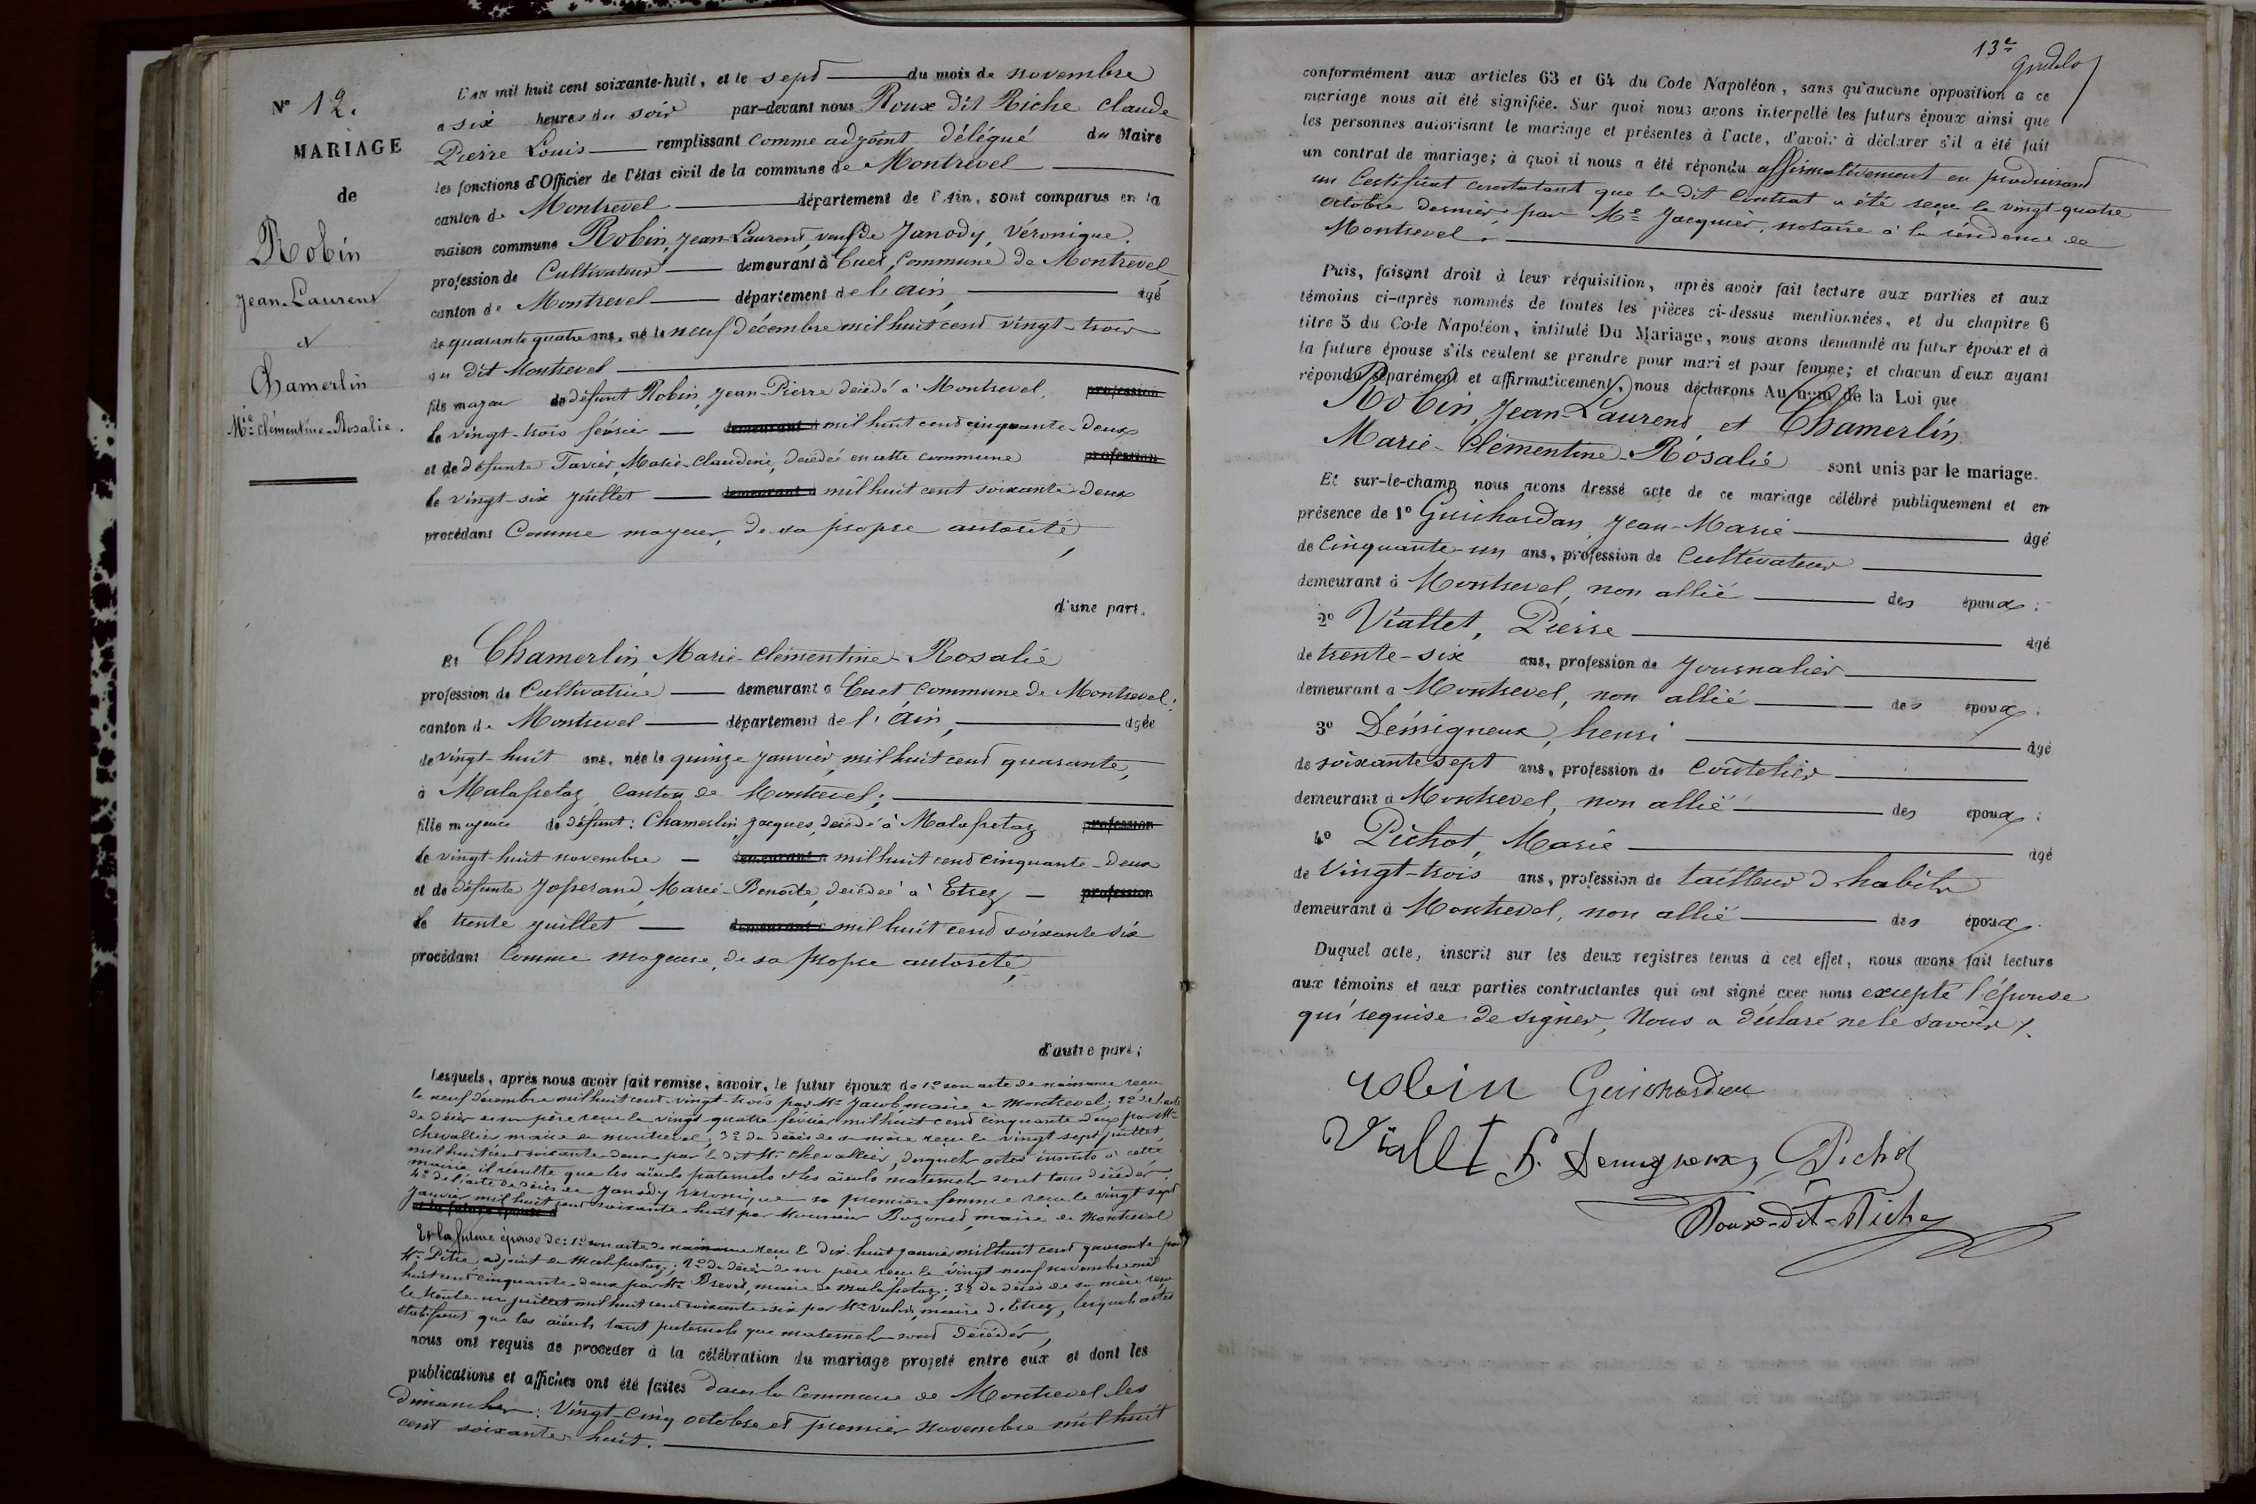 N° 12.
MARIAGE
de
Robin
Jean-Laurent
et
Chamerlin
Mie Clémentine-Rosalie.
L'AN mil huit cent soixante-huit, et le sept du mois de novembre
à six heures du soir par-devant nous Roux dit Riche Claude
Pierre Louis remplissant comme adjoint délégué du Maire
les fonctions d'Officier de l'état civil de la commune de Montrevel
canton de Montrevel département de l'Ain, sont comparus en la
maison commune Robin, Jean-Laurent, veuf de Janody, Véronique.
profession de Cultivateur demeurant à Cuet, Commune de Montrevel
canton de Montrevel département de l'ain, âgé
de quarante quatre ans, né le neuf décembre mil huit cent vingt-trois
au dit Montrevel
fils majeur de défunt Robin, Jean-Pierre décédé à Montrevel, profession
le vingt-trois février demeurant à mil huit cent cinquante-deux
et de défunte Tavier, Marie-Claudine, décédée en cette commune profession
le vingt-six juillet demeurant à mil huit cent soixante-deux
procédant Comme majeur, de sa propre autorité,
d'une part.
Et Chamerlin, Marie-Clémentine-Rosalie
profession de Cultivatrice demeurant à Cuet Commune de Montrevel;
canton de Montrevel département de l'Ain, âgée
de vingt-huit ans, née le quinze janvier, mil huit cent quarante,
à Malafretaz, Canton de Montrevel;
fille majeure de défunt: Chamerlin Jacques, décédé à Malafretaz profession
le vingt-huit novembre demeurant à mil huit cent cinquante-deux
et de défunte Josserand, Marie-Benoite, décédée à Etrez profession
le trente juillet demeurant à mil huit cent soixante six
procédant Comme majeure, de sa propre autorité,
d'autre part;
Lesquels, après nous avoir fait remise, savoir, le futur époux de 1° son acte de naissance reçu
le neuf décembre mil huit cent vingt-trois par Mr Jacob maire à Montrevel; 2° de l'acte
de décès de son père reçu le vingt quatre février mil huit cent cinquante deux par Mr
Chevallier maire de Montrevel; 3° du décès de sa mère reçu le vingt sept juillet
mil huit cent soixante deux par le dit Mr Chevallier, desquels actes inscrits à cette
mairie il résulte que les aïeuls paternels et les aïeuls maternels sont tous décédés;
4° de l'acte de décès de Janody Véronique sa première femme reçu le vingt sept
janvier mil huit cent soixante-huit par Monsieur maire de Montrevel
et la future épouse de
Et la future épouse de: 1° son acte de naissance reçu le dix-huit janvier mil huit cent quarante par
Mr adjoint de Malafretaz; 2° du décès de son père reçu le vingt neuf novembre mil
huit cent cinquante-deux par Mr maire de Malafretaz; 3° du décès de sa mère reçu
le trente-un juillet mil huit cent soixante-six par Mr maire d'Etrez, lesquels actes
établissent que les aïeuls tant paternels que maternels sont décédés,
nous ont requis de procéder à la célébration du mariage projeté entre eux et dont les
publications et affiches ont été faites dans la Commune de Montrevel les
dimanches: Vingt-Cinq octobre et premier Novembre mil huit
cent soixante-huit.
13e
conformément aux articles 63 et 64 du Code Napoléon, sans qu'aucune opposition à ce
mariage nous ait été signifiée. Sur quoi nous avons interpellé les futurs époux ainsi que
les personnes autorisant le mariage et présentes à l'acte, d'avoir à déclarer s'il a été fait
un contrat de mariage; à quoi il nous a été répondu affirmativement en produisant
un Certificat constatant que le dit Contrat a été reçu le vingt-quatre
octobre dernier, par Me Jacquier, notaire à la résidence de
Montrevel.
Puis, faisant droit à leur réquisition, après avoir fait lecture aux parties et aux
témoins ci-après nommés de toutes les pièces ci-dessus mentionnées, et du chapitre 6
titre 5 du Code Napoléon, intitulé Du Mariage, nous avons demandé au futur époux et à
la future épouse s'ils veulent se prendre pour mari et pour femme; et chacun d'eux ayant
répondu séparément et affirmativement, nous déclarons Au nom de la Loi que
Robin, Jean-Laurent, et Chamerlin
Marie-Clémentine-Rosalie sont unis par le mariage.
Et sur-le-champ nous avons dressé acte de ce mariage célébré publiquement et en
présence de 1° Guichardan, Jean-Marie âgé
de Cinquante-un ans, profession de Cultivateur
demeurant à Montrevel, non allié des époux;
2° Viallet, Pierre âgé
de trente-six ans, profession de Journalier
demeurant à Montrevel, non allié des époux;
3° Démigneux, henri âgé
de soixante sept ans, profession de Coutelier
demeurant à Montrevel, non allié des époux;
4° Pichot, Marie âgé
de Vingt-trois ans, profession de tailleur d'habits
demeurant à Montrevel, non allié des époux.
Duquel acte, inscrit sur les deux registres tenus à cet effet, nous avons fait lecture
aux témoins et aux parties contractantes qui ont signé avec nous excepté l'épouse
qui requise de signer, Nous a déclaré ne le savoir.
Robin Guichardan
Viallet h. Demigneux Pichot
Roux-dit-Riche